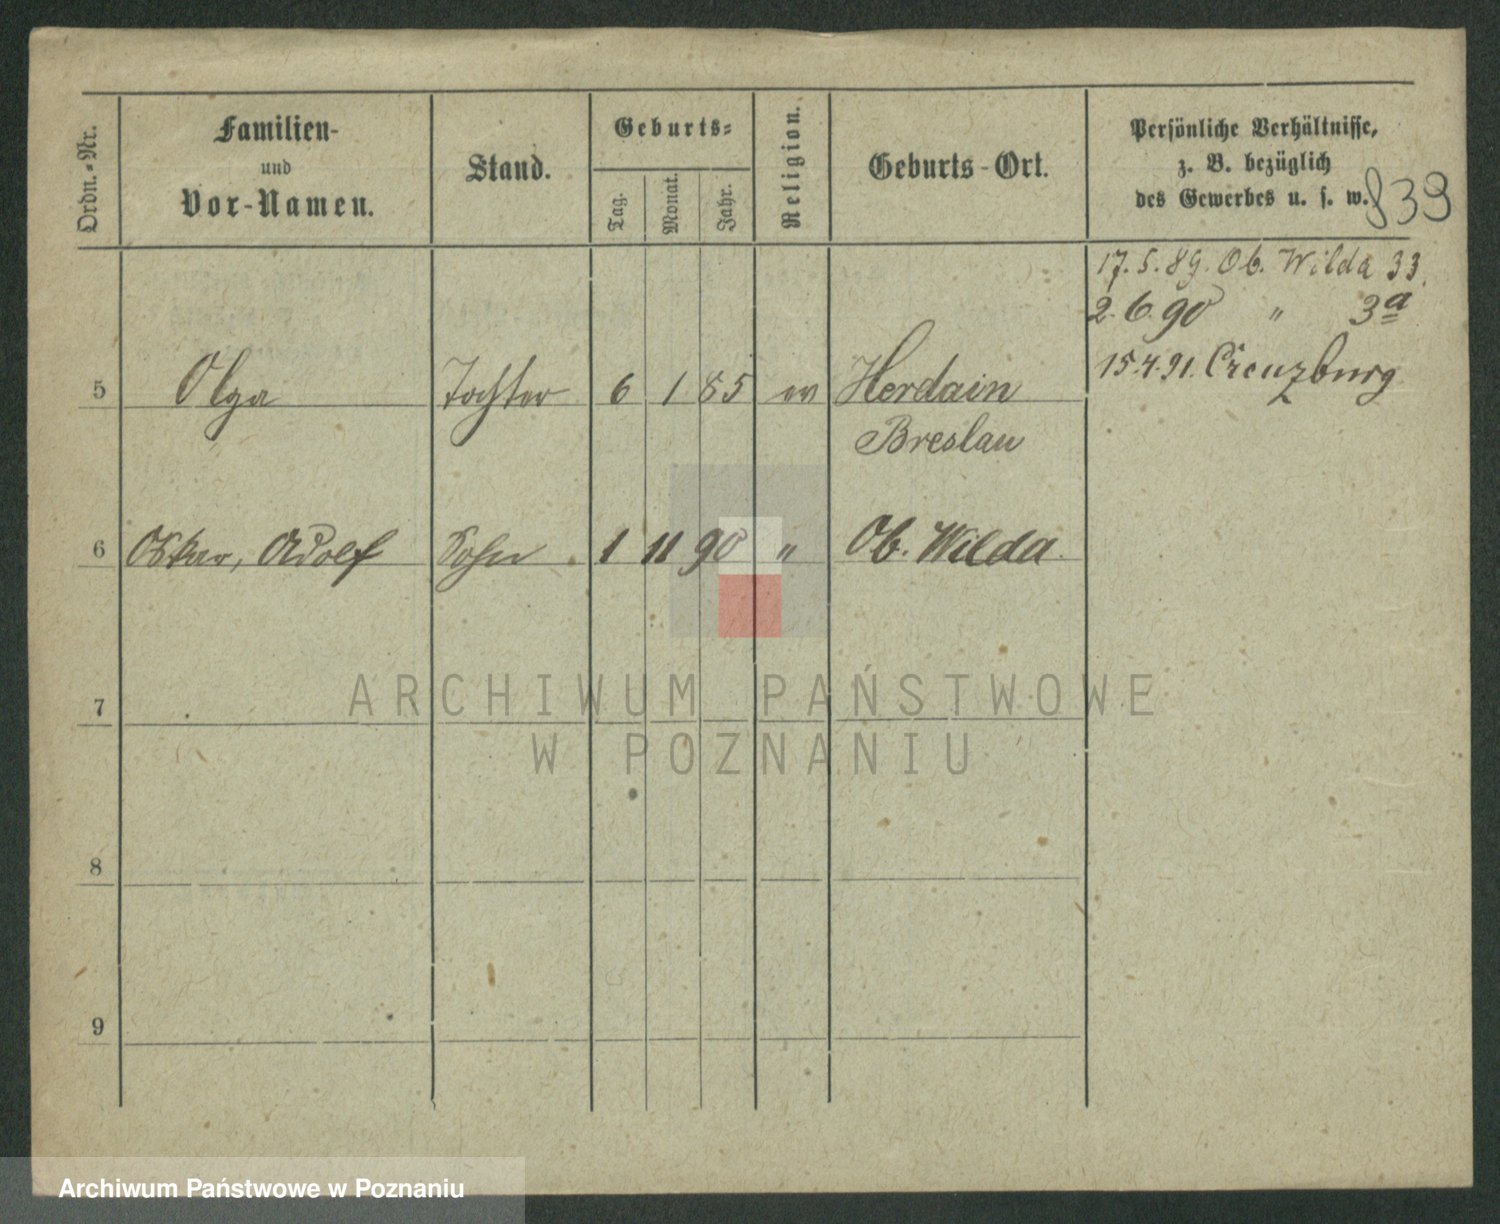 Ordn.-Nr.
Familien-
und
Vor-Namen.
Stand.
Geburts-
Tag.
Monat.
Jahr.
Religion.
Geburts-Ort.
Persönliche Verhältnisse,
z. B. bezüglich
des Gewerbes u. s. w.
839
17.5.89. Ob. Wilda 33.
2.6.90 " 3a
15.4.91. Creuzburg
5 Olga Tochter 6 1 85 ev Herdain
Breslau
6 Oskar, Adolf Sohn 1 11 90 " Ob. Wilda
7
8
9
ARCHIWUM PAŃSTWOWE
W POZNANIU
Archiwum Państwowe w Poznaniu